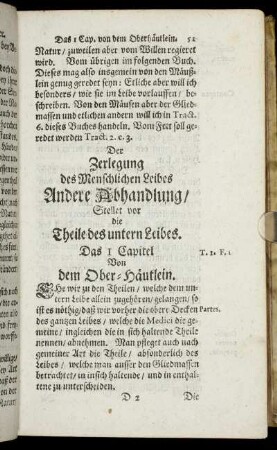 Das 1 Cap. von dem Oberhäutlein. 51
Natur/ zuweilen aber vom Willen regieret
wird. Vom übrigen im folgenden Buch.
Dieses mag also insgemein von den Mäuß-
lein genug geredet seyn: Etliche aber will ich
besonders/ wie sie im Leibe vorlauffen/ be-
schreiben. Von den Mäusen aber der Glied-
massen und etlichen andern will ich in Tract.
6. dieses Buches handeln. Vom Fett soll ge-
redet werden Tract. 2. c. 3.
Der
Zerlegung
des Menschlichen Leibes
Andere Abhandlung/
Stellet vor
die
Theile des untern Leibes.
Das 1 Capitel T. 2. F. 1.
Von
dem Ober-Häutlein.
EHe wir zu den Theilen/ welche dem un-
tern Leibe allein zugehören/ gelangen/ so
ist es nöthig/ daß wir vorher die obere Decken Partes.
des gantzen Leibes/ welche die Medici die ge-
meine/ ingleichen die in sich haltende Theile
nennen/ abnehmen. Man pfleget auch nach
gemeiner Art die Theile/ absonderlich des
Leibes/ welche man ausser den Gliedmassen
betrachtet/ in insich haltende/ und in enthal-
tene zu unterscheiden.
D 2 Die